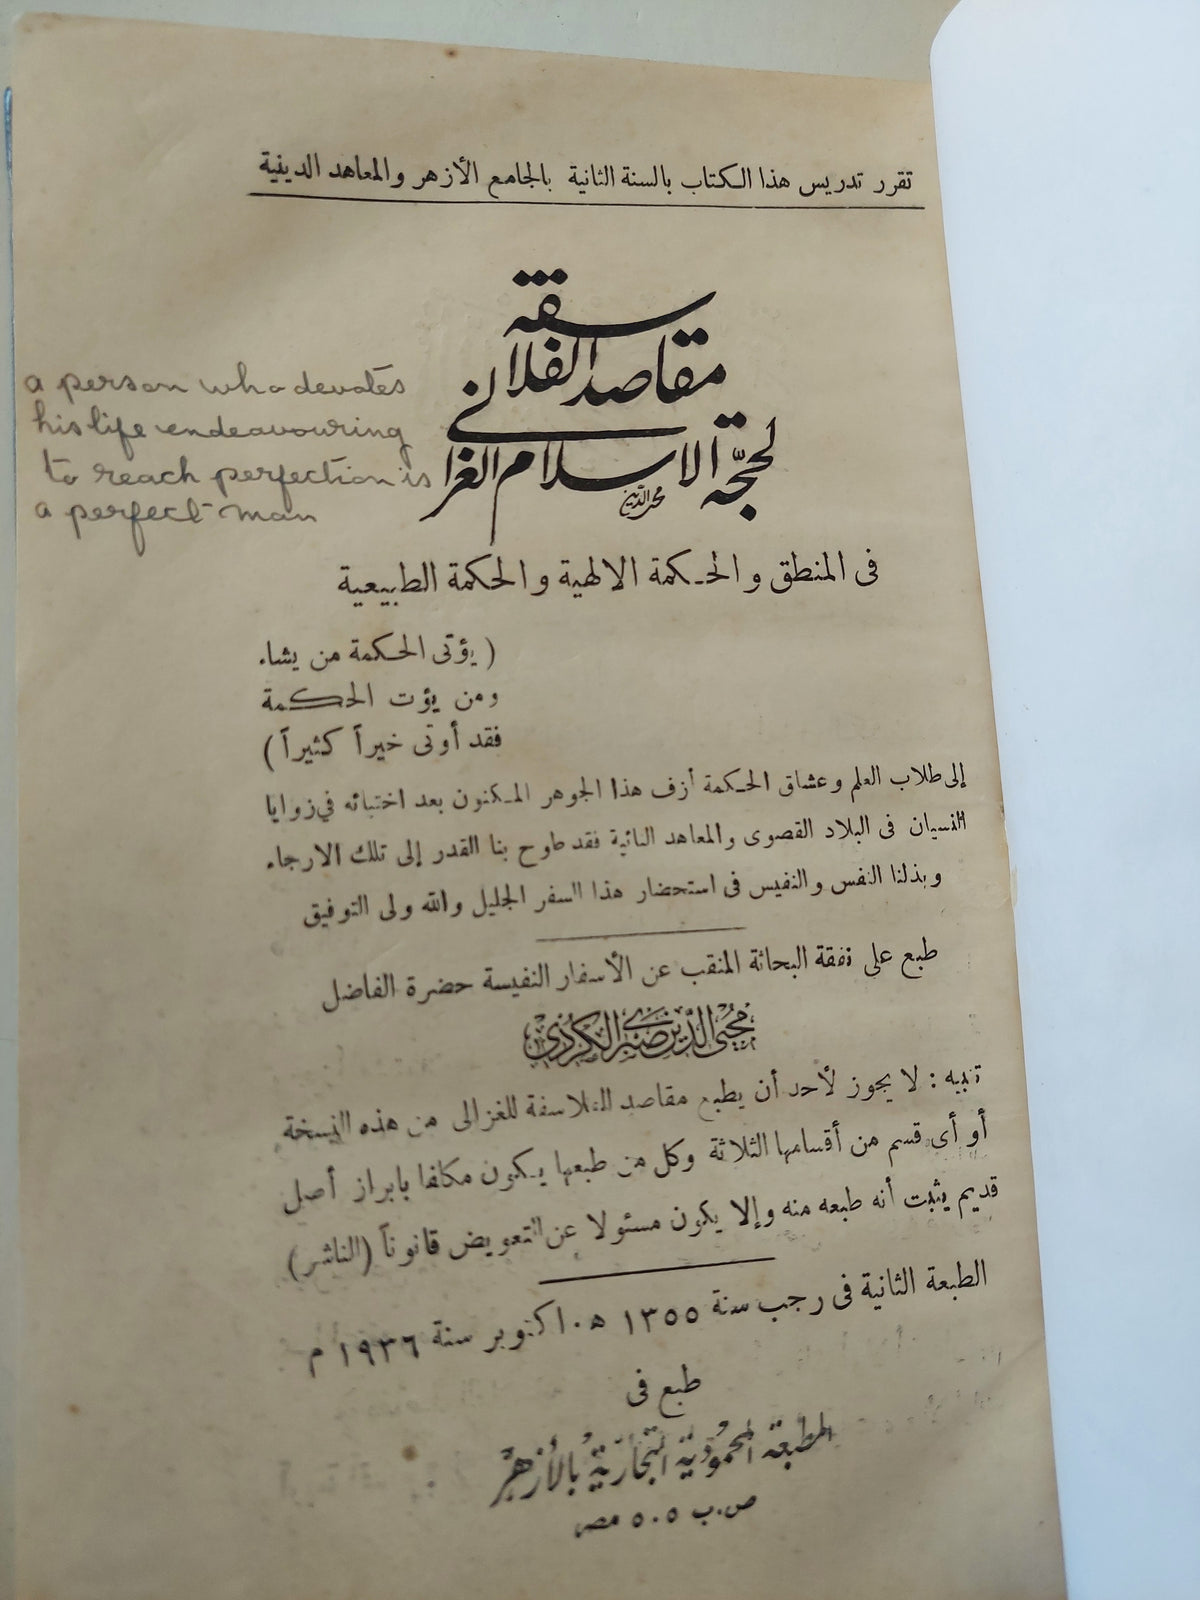 تقرر تدريس هذا الكتاب بالسنة الثانية بالجامع الأزهر والمعاهد الدينية
مقاصد الفلاسفة
لحجة الاسلام الغزالي
محي الدين
a person who devotes
his life endeavouring
to reach perfection is
a perfect man
فى المنطق والحكمة الالهية والحكمة الطبيعية
( يؤتى الحكمة من يشاء
ومن يؤت الحكمة
فقد أوتى خيراً كثيراً )
إلى طلاب العلم وعشاق الحكمة أزف هذا الجوهر المكنون بعد اختبائه في زوايا
النسيان فى البلاد القصوى والمعاهد النائية فقد طوح بنا القدر إلى تلك الارجاء
وبذلنا النفس والنفيس فى استحضار هذا السفر الجليل والله ولى التوفيق
طبع على نفقة البحاثة المنقب عن الأسفار النفيسة حضرة الفاضل
محيي الدين صبري الكردي
تنبيه : لا يجوز لأحد أن يطبع مقاصد الفلاسفة للغزالى من هذه النسخة
أو أى قسم من أقسامها الثلاثة وكل من طبعها يكون مكلفا بابراز أصل
قديم يثبت أنه طبعه منه وإلا يكون مسئولا عن التعويض قانوناً (الناشر)
الطبعة الثانية فى رجب سنة ١٣٥٥ ه . اكتوبر سنة ١٩٣٦ م
طبع فى
المطبعة المحمودية التجارية بالأزهر
ص.ب ٥٠٥ مصر